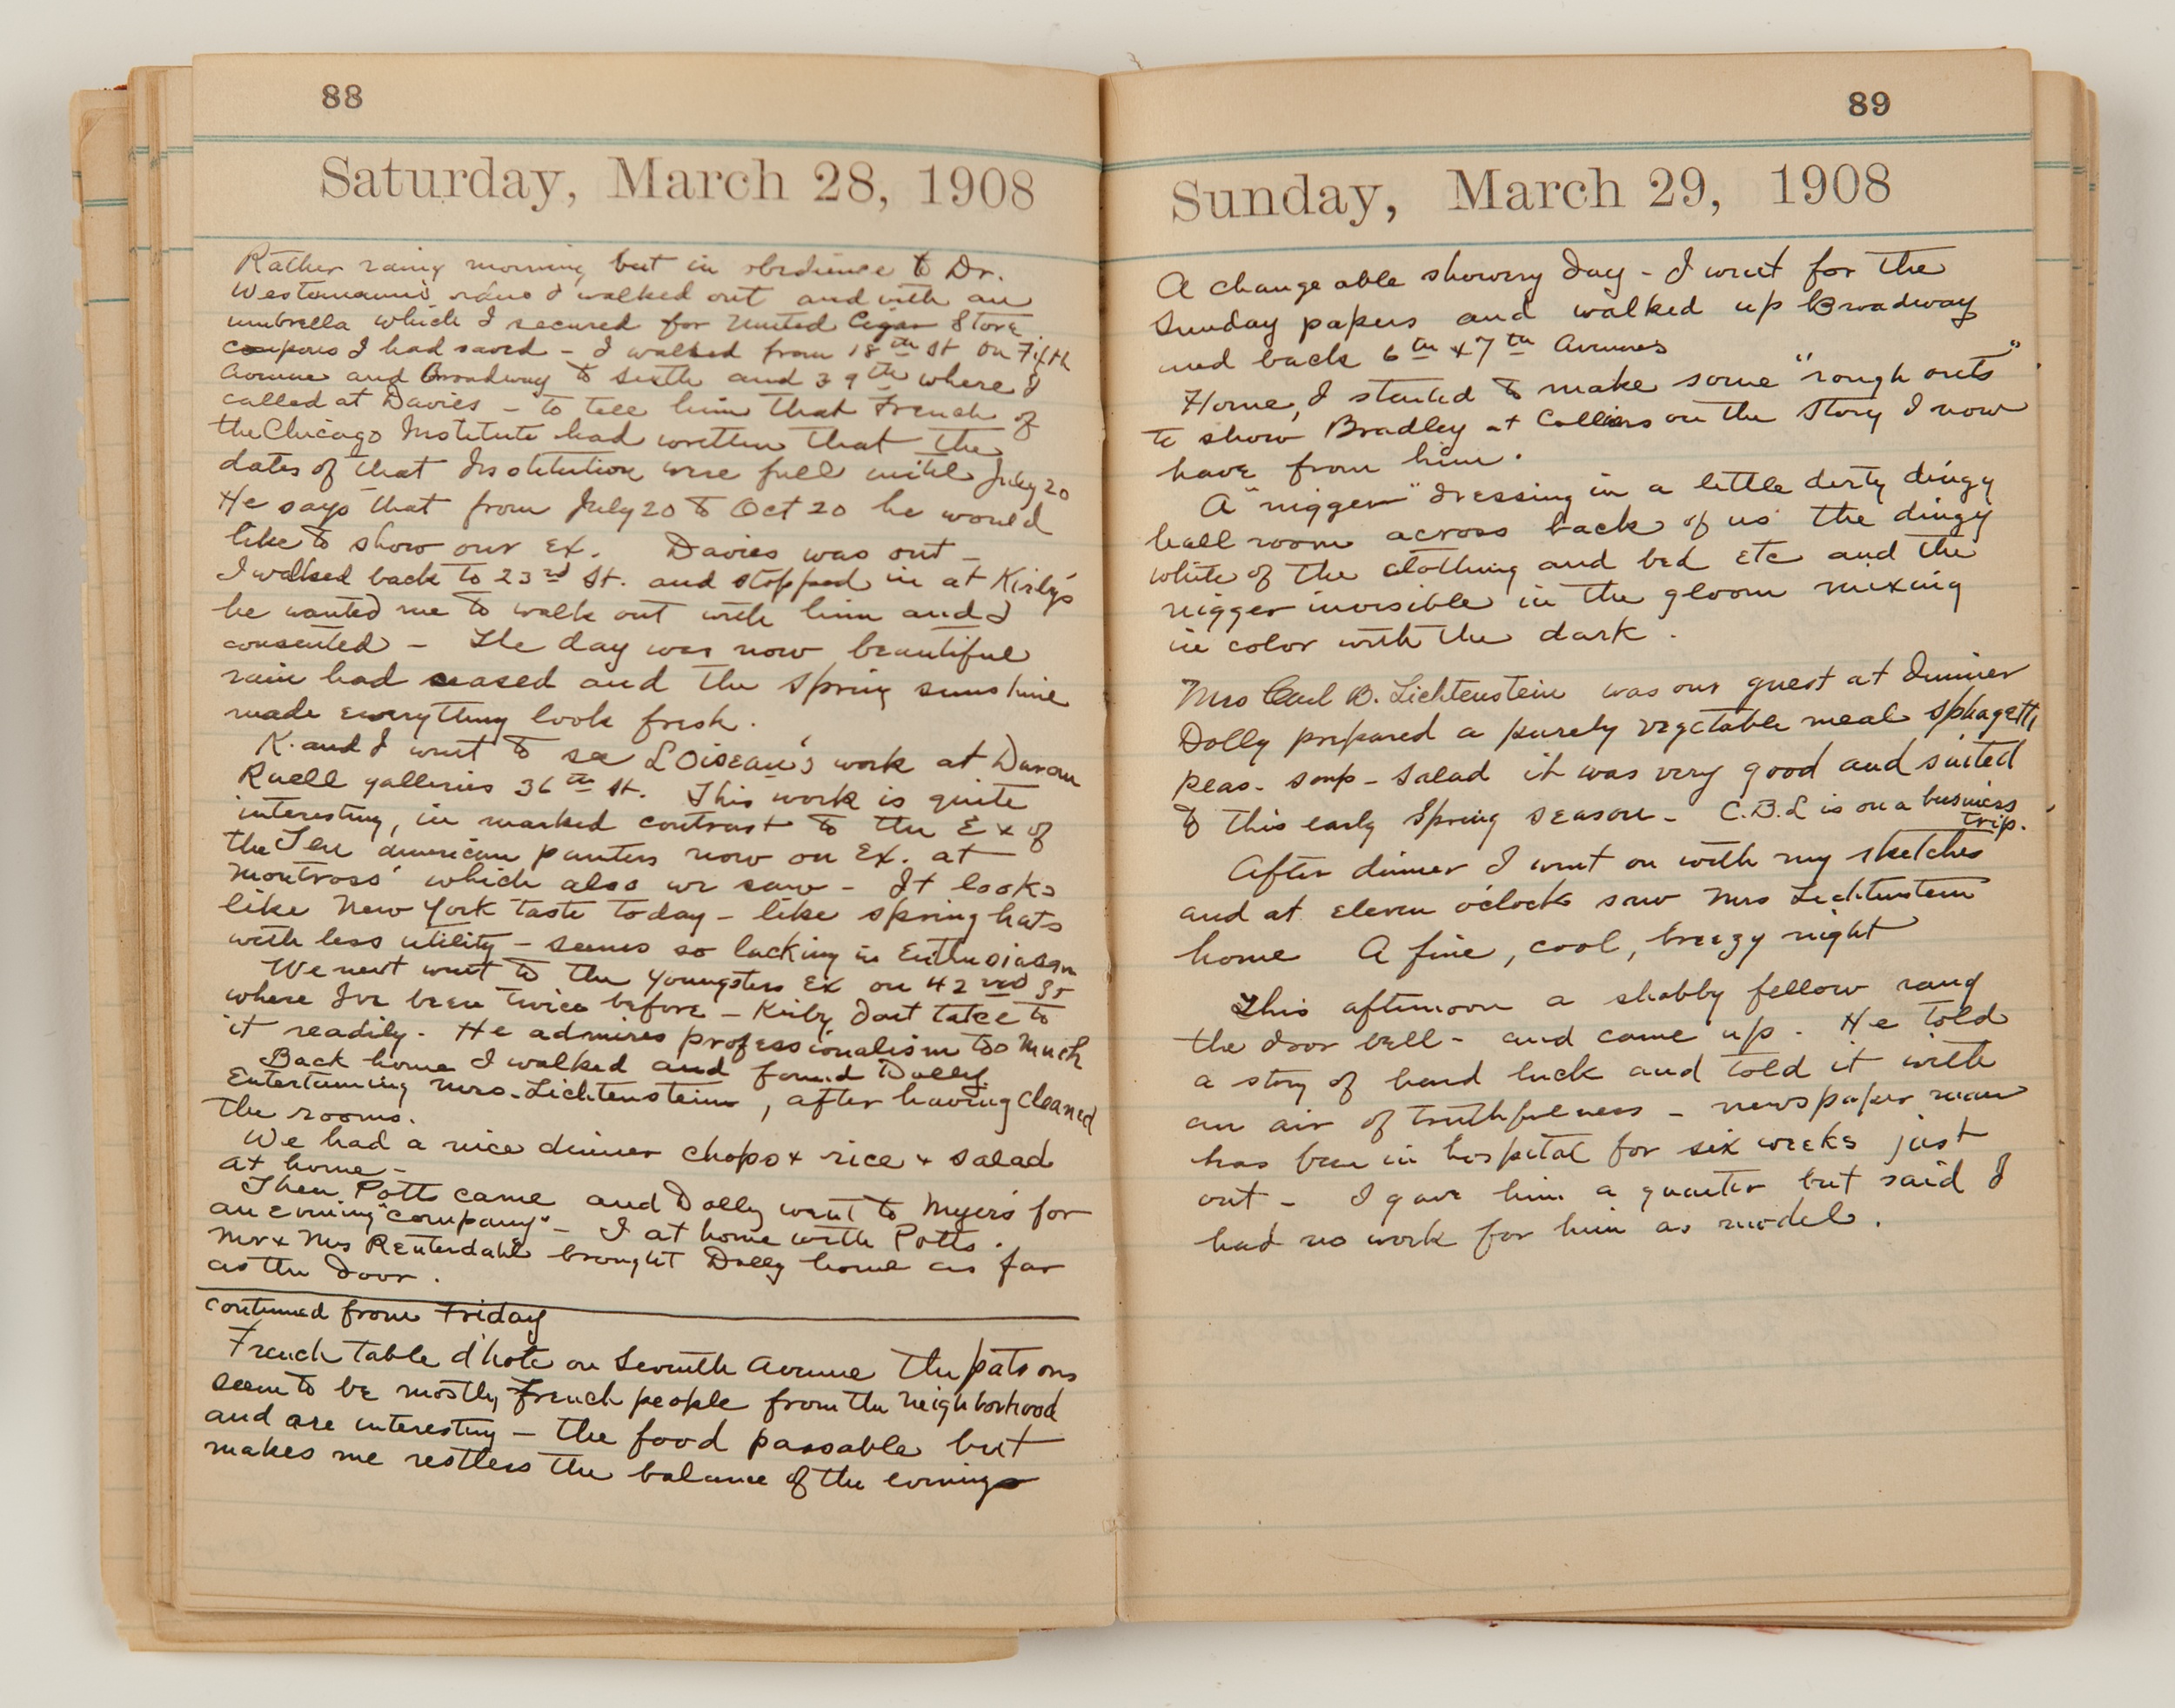 88
Saturday, March 28, 1908
Rather rainy morning but in obedience to Dr.
Westermann's ideas I walked out and with an
umbrella which I secured for United Cigar Store
coupons I had saved - I walked from 18th St on Fifth
Avenue and Broadway to Sixth and 39th where I
called at Davies - to tell him that French of
the Chicago Institute had written that the
dates of that Institution were full until July 20
He says that from July 20 to Oct 20 he would
like to show our Ex. Davies was out -
I walked back to 23rd St. and stopped in at Kirby's
he wanted me to walk out with him and I
consented - The day was now beautiful
rain had ceased and the spring sunshine
made everything look fresh.
K. and I went to see L'Oiseau's work at Duran
Ruell galleries 36th St. This work is quite
interesting, in marked contrast to the Ex of
the Ten American painters now on Ex. at
Montross' which also we saw - It looks
like New York taste today - like spring hats
with less utility - seems so lacking in Enthusiasm
We next went to the Youngsters Ex on 42nd St
where I've been twice before - Kirby dont take to
it readily. He admires professionalism too much
Back home I walked and found Dolly
Entertaining Mrs. Lichtenstein, after having cleaned
the rooms.
We had a nice dinner chops + rice + salad
at home -
Then Potts came and Dolly went to Myers' for
an evening "company" - I at home with Potts.
Mr + Mrs Reuterdahl brought Dolly home as far
as the door.
continued from Friday
French table d'hote on Seventh Avenue The patrons
seem to be mostly French people from the neighborhood
and are interesting - the food passable but
makes me restless the balance of the evening
89
Sunday, March 29, 1908
A changeable showery day - I went for the
Sunday papers and walked up Broadway
and back 6th + 7th Avenues
Home, I started to make some "rough outs"
to show Bradley at Colliers on the story I now
have from him.
A "nigger" dressing in a little dirty dingy
hall room across back of us the dingy
white of the clothing and bed etc and the
nigger invisible in the gloom mixing
in color with the dark.
Mrs Carl B. Lichtenstein was our guest at dinner
Dolly prepared a purely vegetable meal sphagetti
peas - soup - salad it was very good and suited
to this early Spring season - C.B.L is on a business
trip.
After dinner I went on with my sketches
and at eleven o'clock saw Mrs Lichtenstein
home A fine, cool, breezy night
This afternoon a shabby fellow rang
the door bell - and came up. He told
a story of hard luck and told it with
an air of truthfulness - newspaper man
has been in hospital for six weeks just
out - I gave him a quarter but said I
had no work for him as model.